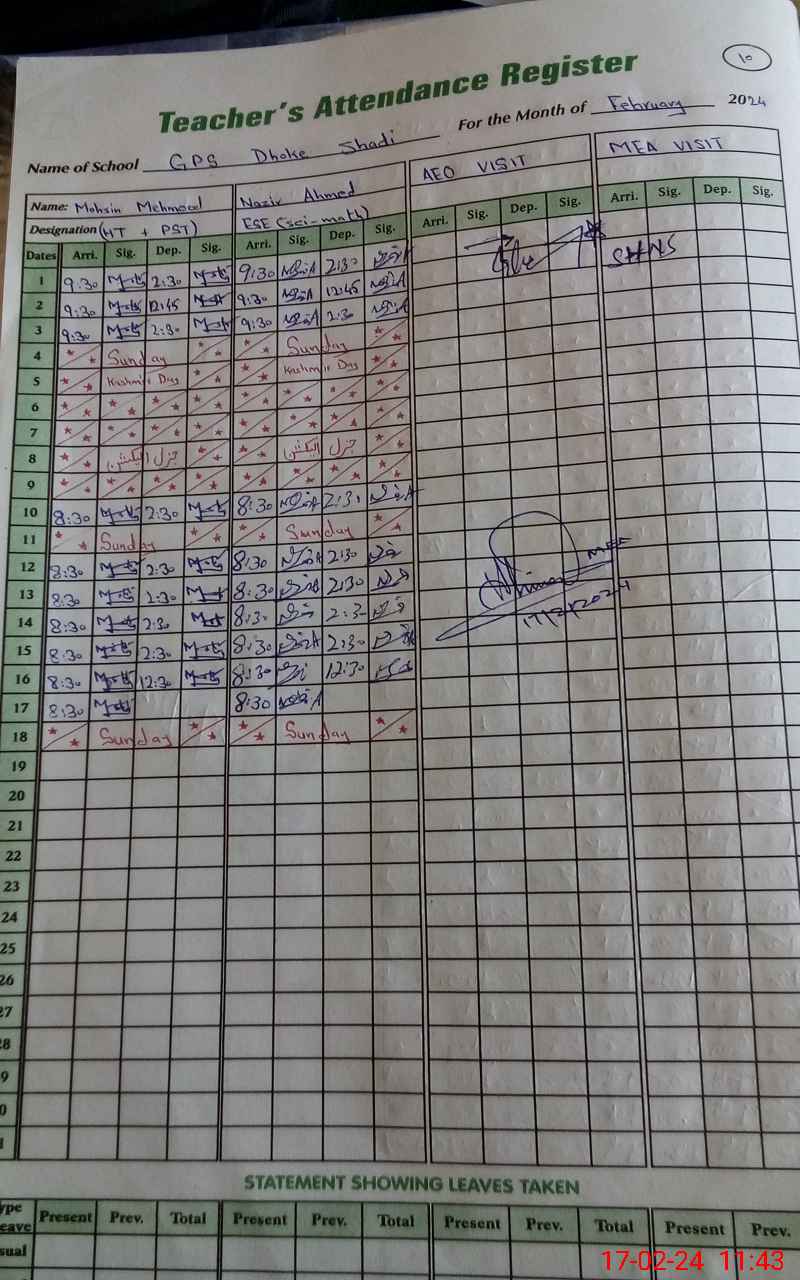 10
Teacher's Attendance Register
For the Month of February 2024
Name of School GPS Dhoke Shadi
Name: Mohsin Mehmood Nazir Ahmed AEO VISIT MEA VISIT
Designation (HT + PST) ESE (sci-math)
Dates Arri. Sig. Dep. Sig. Arri. Sig. Dep. Sig. Arri. Sig. Dep. Sig. Arri. Sig. Dep. Sig.
1 9:30 2:30 9:30 2:30
2 9:30 12:45 9:30 12:45
3 9:30 2:30 9:30 2:30
4 Sunday Sunday
5 Kashmir Day Kashmir Day
6
7
8 جنرل الیکشن جنرل الیکشن
9
10 8:30 2:30 8:30 2:30
11 Sunday Sunday
12 8:30 2:30 8:30 2:30
13 8:30 2:30 8:30 2:30
14 8:30 2:30 8:30 2:30
MEA
17/2/2024
15 8:30 2:30 8:30 2:30
16 8:30 12:30 8:30 12:30
17 8:30 8:30
18 Sunday Sunday
19
20
21
22
23
24
25
26
27
28
9
0
1
STATEMENT SHOWING LEAVES TAKEN
ype eave Present Prev. Total Present Prev. Total Present Prev. Total Present Prev.
sual
17-02-24 11:43